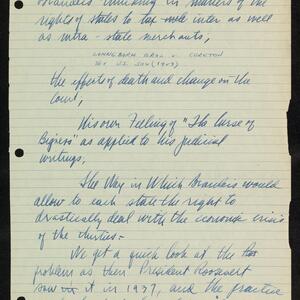 Brandeis thinking in matters of the
rights of states to tax inter as well
as intra-state merchants,
SONNEBORN BROS v. CURETON
262 U.S. 506 (1923)
the effects of death and change on the
Court,
His own Feeling of "The Curse of
Bigness" as applied to his judicial
writings,
The Way in Which Brandeis would
allow to each state the right to
drastically deal with the economic crisis
of the thirties -
We get a quick look at the
problem as then President Roosevelt
saw it in 1937, and the practice